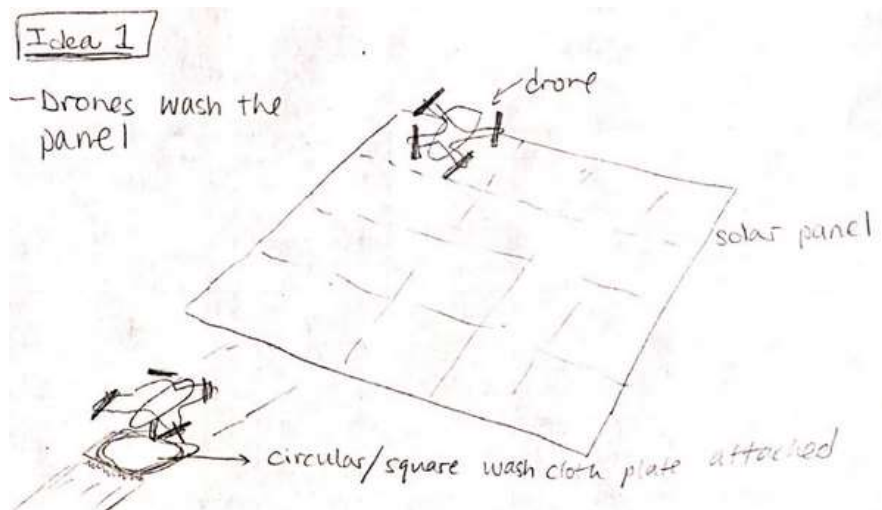 Idea 1
- Drones wash the
panel
drone
solar panel
circular/square wash cloth plate attached